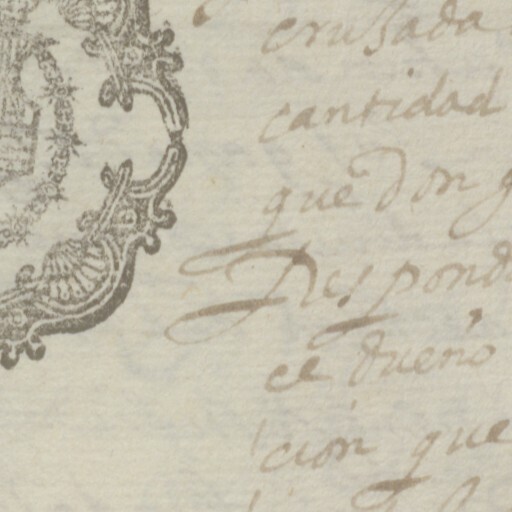 cruzada
cantidad
que Don
Respond
ce dueño
cion que